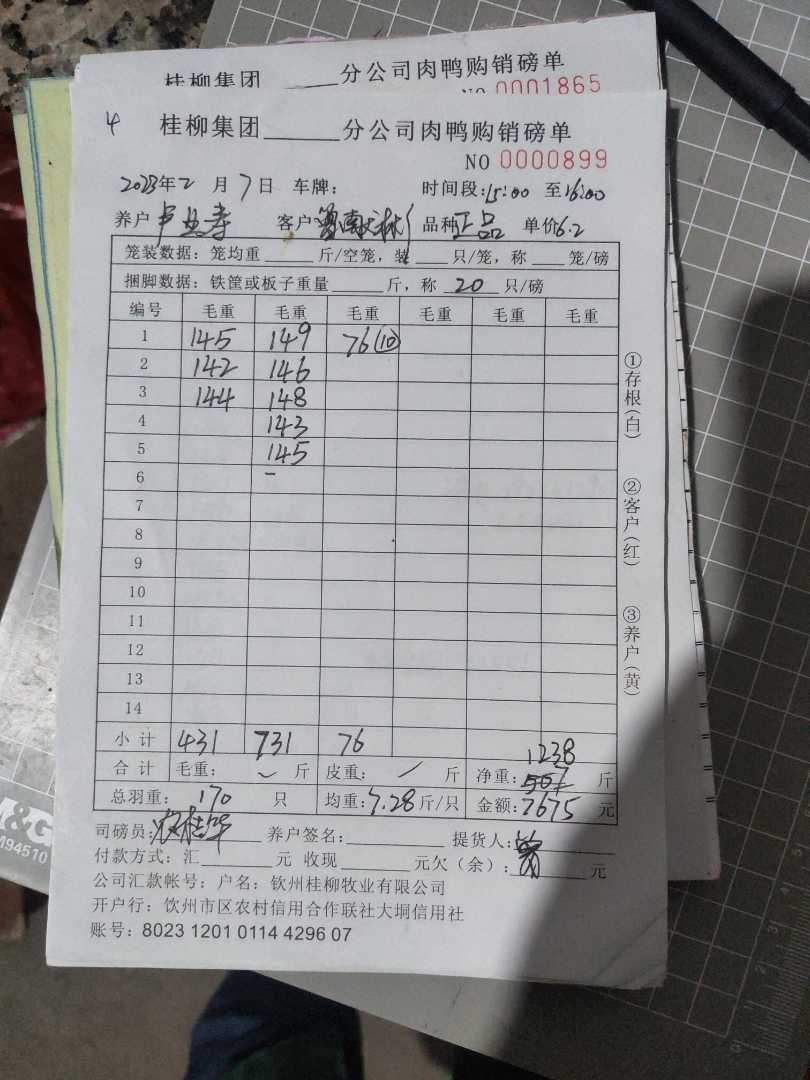 桂柳集团______分公司肉鸭购销磅单
NO 0001865
4 桂柳集团______分公司肉鸭购销磅单
NO 0000899
2023年2月7日 车牌: 时间段:15:00 至16:00
养户 客户 品种正品 单价6.2
笼装数据: 笼均重____斤/空笼, 装____只/笼, 称____笼/磅
捆脚数据: 铁筐或板子重量____斤, 称 20 只/磅
编号 毛重 毛重 毛重 毛重 毛重 毛重
1 145 149 76(10)
2 142 146
3 144 148
4 143
5 145
6 -
7
8
9
10
11
12
13
14
小计 431 731 76
1238
合计 毛重: 斤 皮重: 斤 净重: 斤
总羽重: 170 只 均重: 7.28 斤/只 金额: 7675 元
司磅员: 农桂华 养户签名:____ 提货人:
付款方式: 汇____元 收现____元欠(余):____元
公司汇款帐号: 户名: 钦州桂柳牧业有限公司
开户行: 钦州市区农村信用合作联社大垌信用社
账号: 8023 1201 0114 4296 07
①存根(白)
②客户(红)
③养户(黄)
M&G
94510